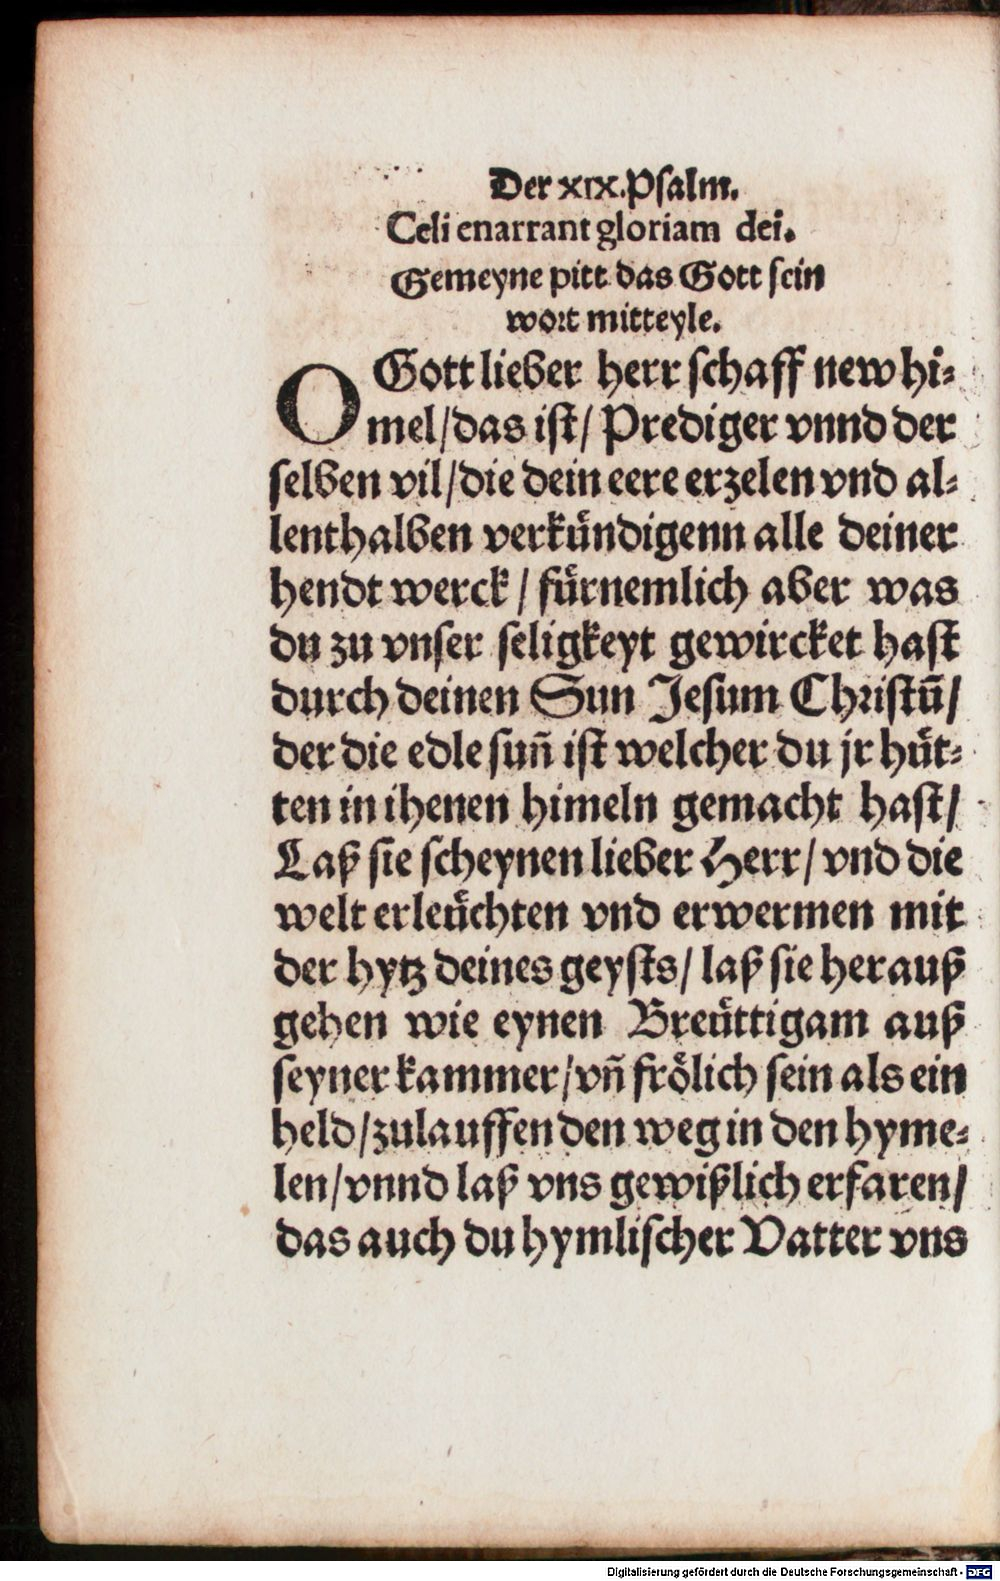 Der XIX. Psalm.
Celi enarrant gloriam dei.
Gemeyne pitt das Gott sein
wort mitteyle.
O Gott lieber herr schaff new hi-
mel/das ist/ Prediger vnnd der
selben vil/die dein eere erzelen vnd al-
lenthalben verkündigenn alle deiner
hendt werck / fürnemlich aber was
du zu vnser seligkeyt gewircket hast
durch deinen Sun Jesum Christū/
der die edle suñ ist welcher du jr hüt-
ten in ihenen himeln gemacht hast/
Laß sie scheynen lieber Herr/ vnd die
welt erleüchten vnd erwermen mit
der hytz deines geysts/ laß sie herauß
gehen wie eynen Breüttigam auß
seyner kammer/vñ frölich sein als ein
held/zulauffen den weg in den hyme-
len/vnnd laß vns gewißlich erfaren/
das auch du hymlischer Vatter vns
Digitalisierung gefördert durch die Deutsche Forschungsgemeinschaft - DFG